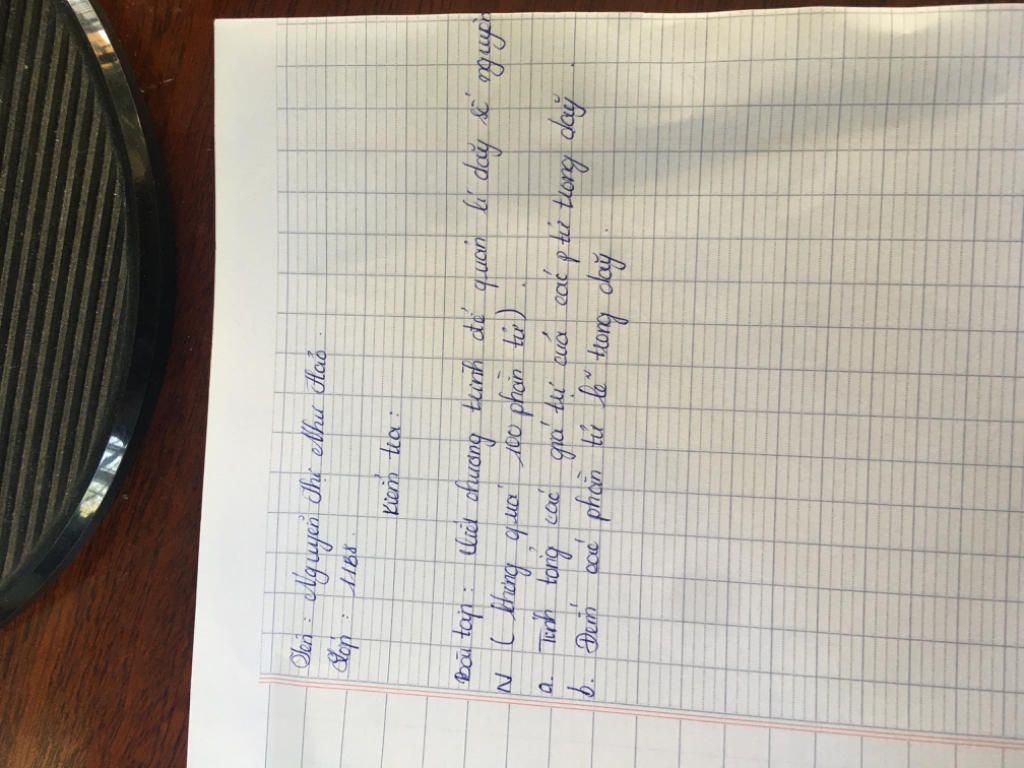 Tên : Nguyễn Thị Như Hảo.
Lớp : 11B8.
Kiểm tra :
Bài tập : Viết chương trình để quản lí dãy số nguyên
N ( không quá 100 phần tử ) .
a. Tính tổng các giá trị của các p tử trong dãy .
b. Đếm các phần tử lẻ trong dãy .